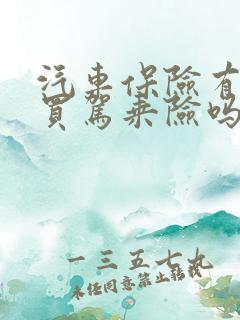 汽車保險有
買駕乘險吗
一三五七九
未经同意禁止转载